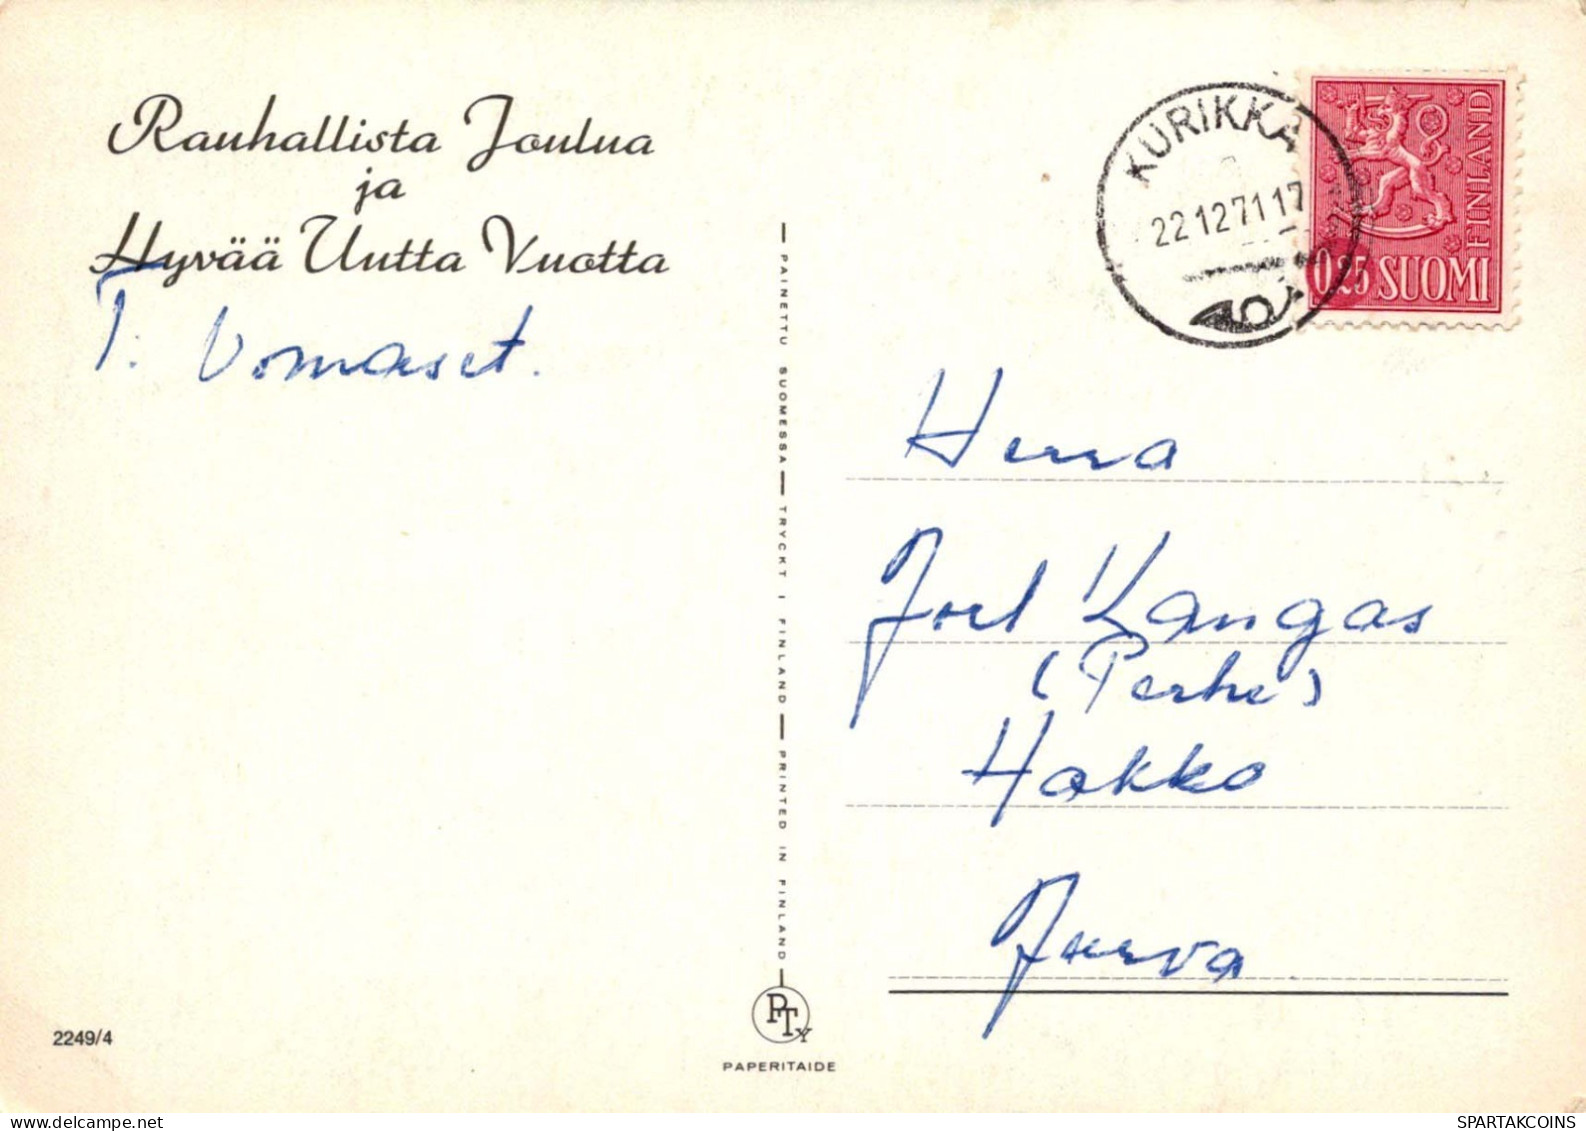 Rauhallista Joulua
ja
Hyvää Uutta Vuotta
T. Uomaset.
PAINETTU SUOMESSA — TRYCKT I FINLAND — PRINTED IN FINLAND
KURIKKA
22.12.71 17
FINLAND
0,25 SUOMI
Herra
Joel Kangas
(Perhe)
Hakko
Jurva
PTy
PAPERITAIDE
2249/4
www.delcampe.net
SPARTAKCOINS